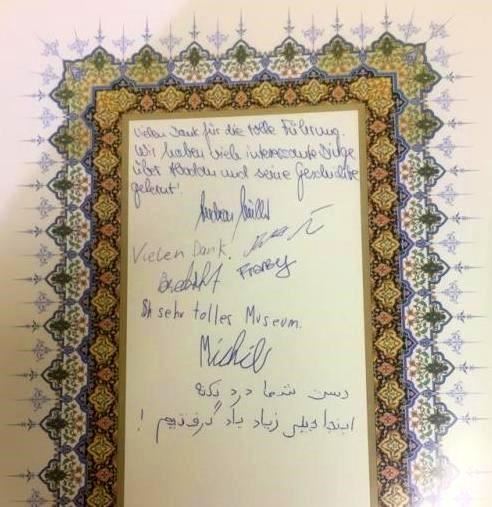 Vielen Dank für die tolle Führung.
Wir haben viele interessante Dinge
über Abadan und seine Geschichte
gelernt!
Vielen Dank.
Franzy
sehr tolles Museum.
دست شما درد نکنه
اینجا خیلی زیاد یاد گرفتیم !